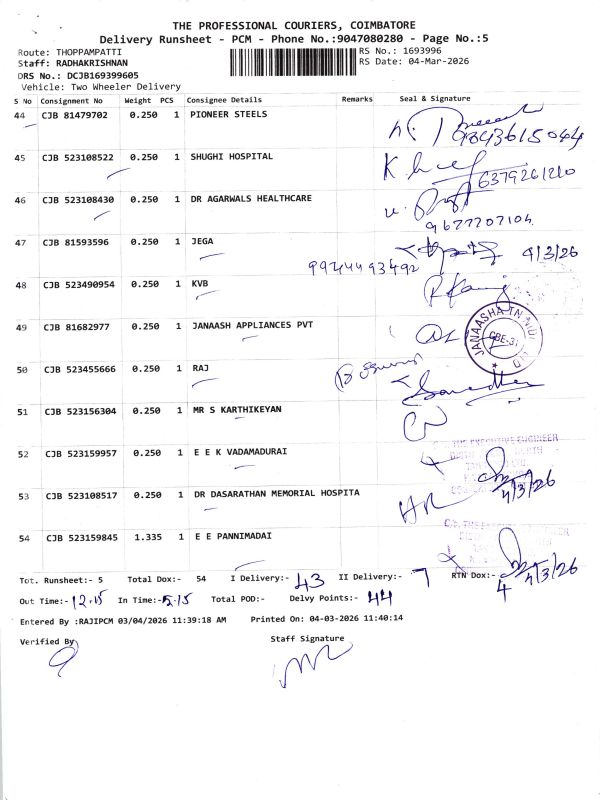 THE PROFESSIONAL COURIERS, COIMBATORE
Delivery Runsheet - PCM - Phone No.:9047080280 - Page No.:5
Route: THOPPAMPATTI RS No.: 1693996
Staff: RADHAKRISHNAN RS Date: 04-Mar-2026
DRS No.: DCJB169399605
Vehicle: Two Wheeler Delivery
S No Consignment No Weight PCS Consignee Details Remarks Seal & Signature
44 CJB 81479702 0.250 1 PIONEER STEELS
9843615044
45 CJB 523108522 0.250 1 SHUGHI HOSPITAL
6379261210
46 CJB 523108430 0.250 1 DR AGARWALS HEALTHCARE
9677707104
47 CJB 81593596 0.250 1 JEGA
9944493492 4/3/26
48 CJB 523490954 0.250 1 KVB
49 CJB 81682977 0.250 1 JANAASH APPLIANCES PVT
JANAASHA TN CBE-31
50 CJB 523455666 0.250 1 RAJ
51 CJB 523156304 0.250 1 MR S KARTHIKEYAN
52 CJB 523159957 0.250 1 E E K VADAMADURAI
THE EXECUTIVE ENGINEER
53 CJB 523108517 0.250 1 DR DASARATHAN MEMORIAL HOSPITA
4/3/26
54 CJB 523159845 1.335 1 E E PANNIMADAI
4/3/26
Tot. Runsheet:- 5 Total Dox:- 54 I Delivery:- 43 II Delivery:- 7 RTN Dox:- 4
Out Time:- 12.15 In Time:- 5.15 Total POD:- Delvy Points:- 44
Entered By :RAJIPCM 03/04/2026 11:39:18 AM Printed On: 04-03-2026 11:40:14
Verified By Staff Signature